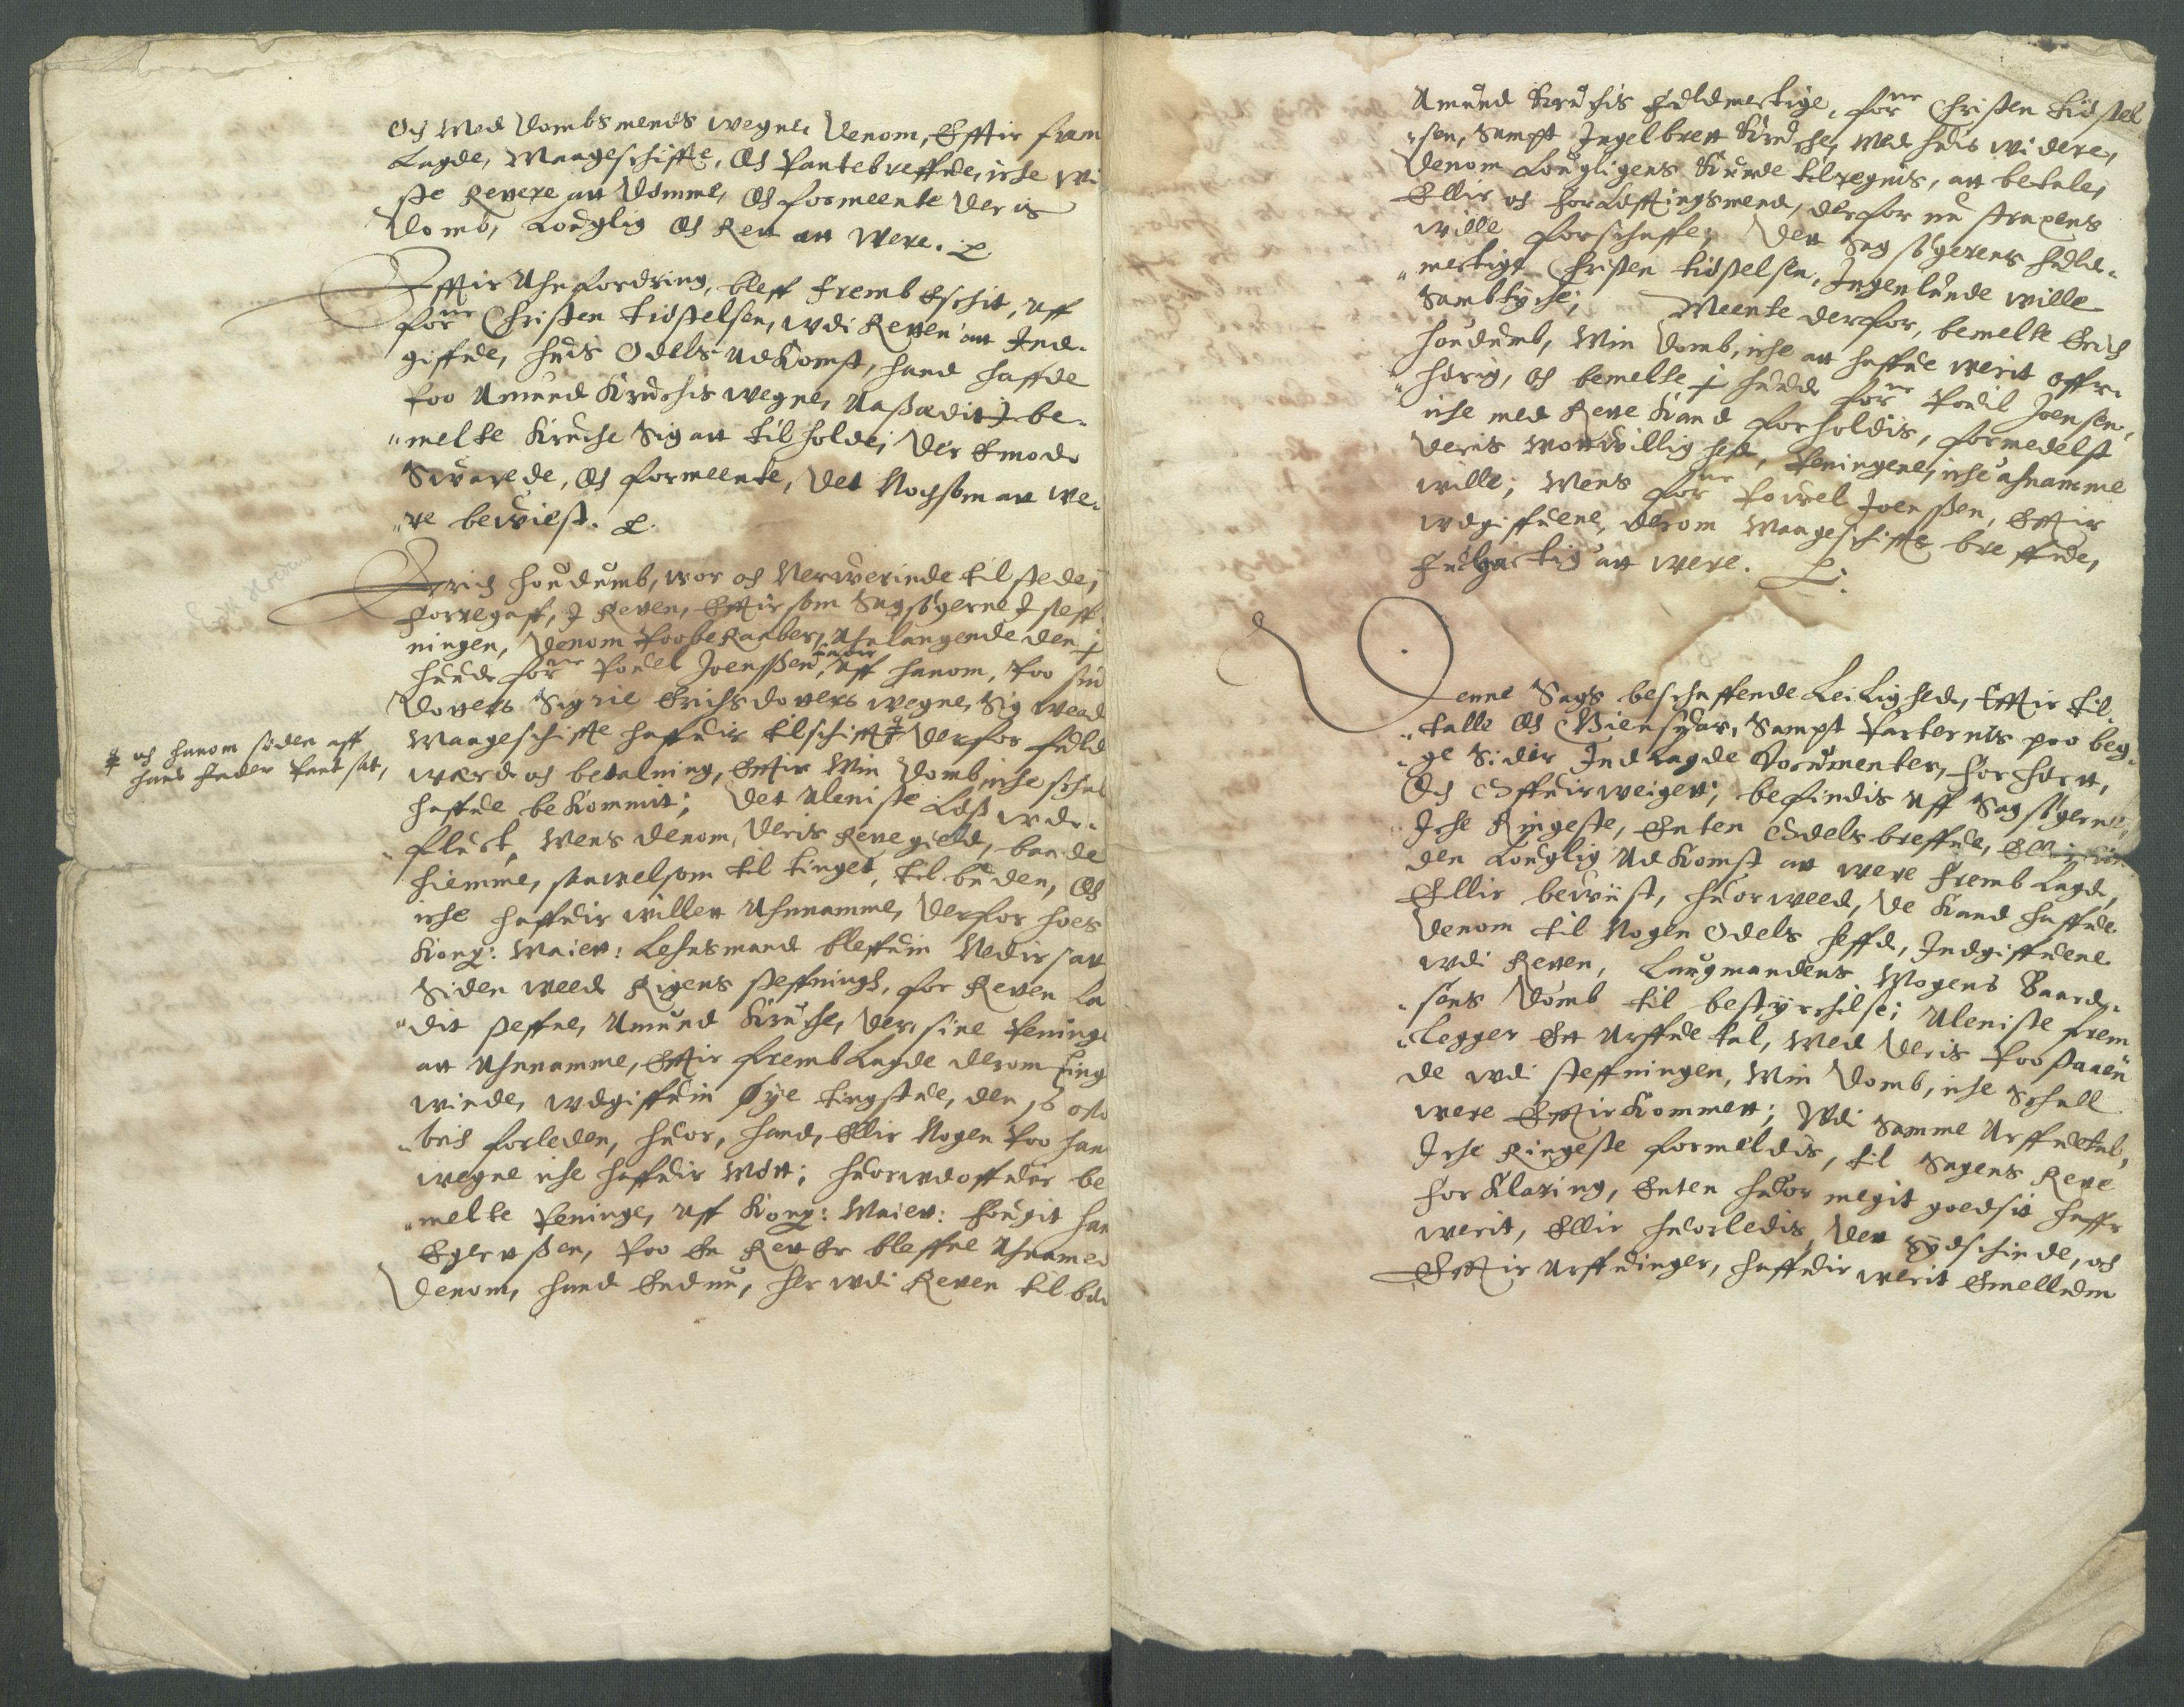 Och Med Dombsmends wegne, Denom, Efftir fram
Lagde, Maageschiffte, Och Pantebreffue, iche wi
ste Rettere att Dømme, Och formeente Deris
Domb, Louglig Och Rett att Were. &.
Efftir Ahnfordring, bleff frembEschit, Aff
forne Christen Tidstelsen, wdi Retten att Ind-
giffue, huis Odels Adkomst, hand haffde
Poo Amund Kruchis wegne, be-
melte Kruche Sig att tilholde; Der Emod
Swarede, Och formeente, Det Nochsom att We-
re bewiest. &.
Erich Houdumb, wor och Nerwerinde tilstede;
Forregaff, J Retten, Efftirsom Sagsøgerne J steff-
ningen, Denom Poobe Raaber, Ahnlangende den j
hude forne Pouel Joenssen, Aff hanom, Poo sin
Dotters Sigrie Erichsdotters wegne, Sig weed
Maageschiffte haffuir tilschifft Derfor fuld
wærd och betalning, Efftir Min Domb iche schal
haffue beKommit; Det Aleniste Løss wd-
flugt, Mens denom, Deris Rette gield, baade
hiemme, saauelsom til tinget, til buden, Och
iche haffuir willett Ahnnamme, Derfor hoes
Kong: Maiett: Lehnsmand bleffuin Nedirsatt
Siden weed Rigens steffningh, for Retten La-
dit steffne, Amund Kruche, Der, sine Peninge
att Ahnnamme, Efftir frembLagde derom ting
winde, wdgiffuin Øye tingstue, den octo
bris forleden, huor, hand, Ellir Nogen Poo han
wegne iche haffuir Mött; huorwdoffuer be
melte Peninge, Aff Kong: Maiett: fougit han
Egertssen, Poo En Rett Er bleffne Ahnamed
Denom, hand Endnu, her wdi Retten til böd
och hanom siden aff
hans fader Pantsat,
Amund Kruchis fuldmectige, forne Christen Tidstel
sen, Sampt Jngelbrett Kruche, Med huis widere,
Denom Lougligens Kunde tilregnis, att betale;
Ellir och forløfftingsmend, derfor nu straxens
wille forschaffe; Dett Sagsøgerens fuld-
mectige Christen tidstelsen, Jngenlunde wille
Sambtyche; Meente derfor, bemelte Erich
Houdumb, Min Domb, iche att haffue werit offr-
hørig, och bemelte j hude forne Pouil Joensen,
iche med Rette Kand forholdis, formedelst
Deris Mottwillighed, Peningene, iche ahnamme
wille; Mens forne Powel Joenssen, Efftir
wdgiffuene, derom Maageschiffte breffue,
fulgachtig att were. &.
Denne Sags beschaffende Leilighed, Efftir til-
talle Och Giensuar, Sampt Parternis paa beg-
ge Sider JndLagde Documenter, forhørtt,
Och Offuirweigett; befindis Aff Sagsøgerne,
Jche Ringeste, Enten Odelsbreffue, Ellir
den Louglig AdKomst att were frembLagd,
Ellir bewiist, huorweed, De Kand haffue
Denom til Nogen Odels heffd, Jndgiffuene
wdi Retten, Laugmandens Mogens Baard-
sens Domb til bestyrchelse; Aleniste frem
Legger Ett Arffue tal, Med Deris Poostaaen
de wdi steffningen, Min Domb, iche Schall
were EfftirKommett; Wdi Samme Arffuetal,
Jche Ringeste formeldis, til Sagens Rette
forKlaring, Enten huor megit goedsit haffr
werit, Ellir huorledis, Dett Sydschinde, och
Efftir Arffuinger, haffuir werit Emellum